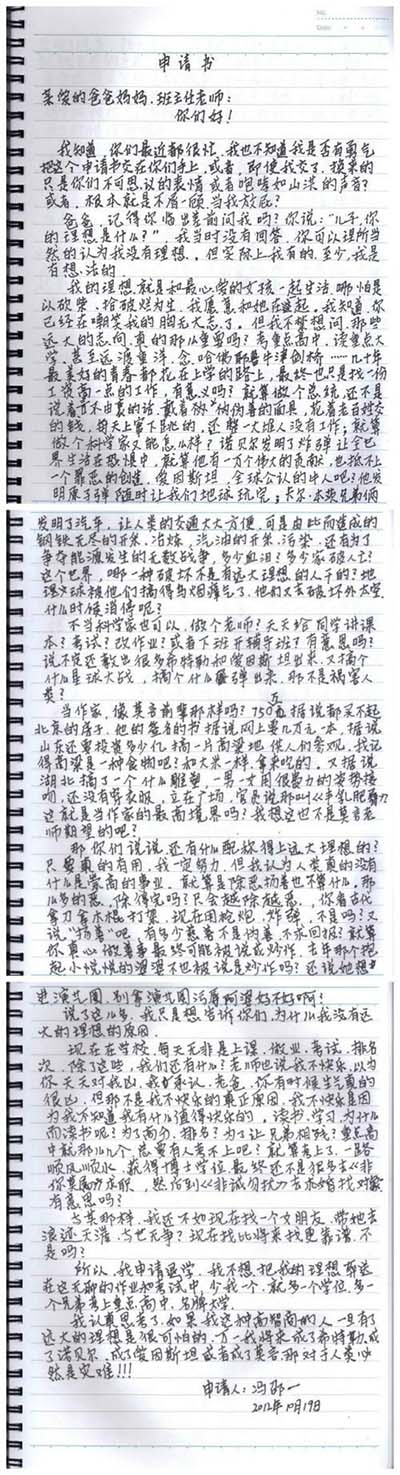 申请书
亲爱的爸爸妈妈、班主任老师：
你们好！
我知道，你们最近都很忙，我也不知道我是否有勇气
把这个申请书交在你们手上，或者，即使我交了，换来的
只是你们不可思议的表情或者咆哮如山洪的声音？
或者，根本就是不屑一顾，当我放屁？
爸爸，记得你临出差前问我吗？你说：“儿子，你
的理想是什么？” 我当时没有回答，你可以理所当
然的认为我没有理想。但实际上我有的，至少，我是
有想法的。
我的理想就是和最心爱的女孩一起生活，哪怕是
以砍柴、拾破烂为生，我愿意和她在一起。我知道，你
已经在嘲笑我的胸无大志了。但我不禁想问，那些
远大的志向，真的那么重要吗？考重点高中，读重点大
学，甚至远渡重洋，念哈佛耶鲁牛津剑桥……几十年
最美好的青春都花在上学的路上，最终也只是找一份
工资高一点的工作，有意义吗？就算做个总统，还不是
说着言不由衷的话，戴着 伪善的面具，花着老百姓交
的钱，每天上窜下跳的，还整一大堆人没有工作；就算
做个科学家又能怎么样？诺贝尔发明了炸弹让全世
界生活在恐惧中，就算他有一万个伟大的贡献，也抵不上
一个罪恶的创造，爱因斯坦，全球公认的牛人吧？他发
明原子弹随时让我们地球玩完；卡尔·本茨兄弟俩
发明了汽车，让人类的交通大大方便，可是由此而造成的
钢铁无尽的开采、冶炼，汽油的开采、污染，还有为了
争夺能源发生的无数战争，多少血泪？多少家破人亡？
这个世界，哪一种破坏不是有远大理想的人干的？地
球又被他们搞得乌烟瘴气了，他们又去破坏外太空，
什么时候消停呢？
不当科学家也可以，做个老师？天天给同学讲课
本？考试？改作业？或者下班开辅导班？有意思吗？
说不定还教出很多希特勒和爱因斯坦出来，又搞个
什么星球大战，搞个什么 弹出来，那不是祸害人
类？
当作家，像莫言前辈那样吗？750万据说都买不起
北京的房子，他的签名的书据说网上要几万元一本，据说
山东还要投资多少亿，搞一片高粱地供人们参观，我记
得高粱是一种食物吧？和大米一样，拿来吃的。又据说
湖北搞了一个什么雕塑，一男一女用很费力的姿势接
吻，还没有穿衣服，立在广场，官员说那叫《丰乳肥臀》
这就是当作家的最高境界吗？我想这也不是莫言老
师期望的吧？
那，你们说说，还有什么配称得上远大理想的？
只要真的有用，我一定努力，但我认为人类真的没有
什么是崇高的事业，就算是除恶扬善也不算什么，那
么多的恶，除得完吗？只会越除越恶，你看古代
拿刀拿木棍打架，现在用枪炮、炸弹，不是吗？又
说“扬善”吧，有多少慈善不是伪善、不求回报？就算
你真心做善事最终可能被说成炒作，去年那个抱
起小悦悦的婆婆不也被说是炒作吗？还说她想
进演艺圈，别拿演艺圈污辱阿婆好不好啊？
说了这么多，我只是想告诉你们，为什么我没有远
大的理想的原因。
现在在学校，每天无非是上课、做业、考试、排名
次，除了这些，我们还有什么？老师也说我不快乐，以为
你天天对我凶，我承认，老爸，你有时候生气真的
很凶，但那不是我不快乐的真正原因，我不快乐是因
为我不知道我有什么值得快乐的。读书、学习，为什么
而读书呢？为了高分、排名？为了让兄弟相残？重点高
中就那么几个，总要有人考不上吧？就算考上了，一路
顺风顺水，获得博士学位，最终还不是很多去《非
你莫属》求职，然后到《非诚勿扰》去求婚找对象，
有意思吗？
与其那样，我还不如现在找一个女朋友，带她去
浪迹天涯，与世无争？现在找比将来找更靠谱，不
是吗？
所以，我申请退学，我不想把我的理想葬送
在这无聊的作业和考试中，少我一个，就多一个学位，多一
个兄弟考上重点高中、名牌大学。
我认真思考了，如果我这种高智商的人一旦有了
远大的理想是很可怕的，万一我将来成了希特勒，成
了诺贝尔，成了爱因斯坦或者成了莫言，那对于人类必
然是灾难！！！
申请人：冯邵一
2012年10月19日